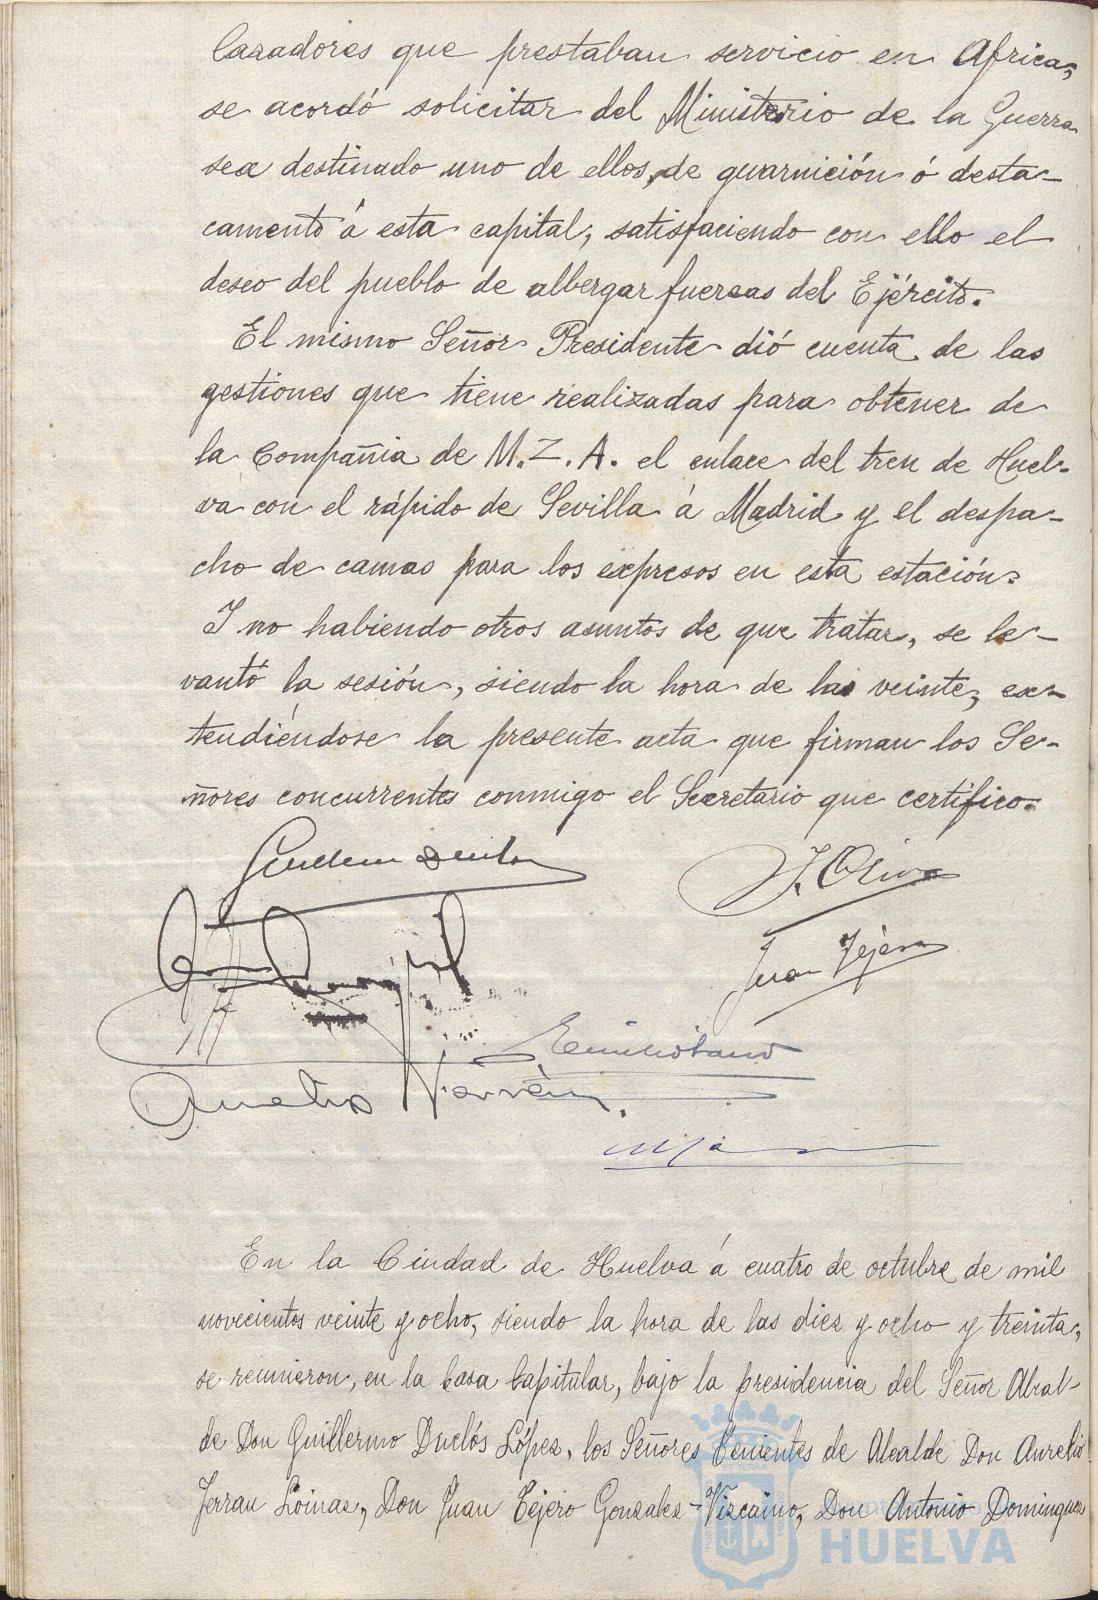 Cazadores que prestaban servicio en Africa,
se acordó solicitar del Ministerio de la Guerra
sea destinado uno de ellos, de guarnición ó desta-
camento á esta capital, satisfaciendo con ello el
deseo del pueblo de albergar fuerzas del Ejército.
El mismo Señor Presidente dió cuenta de las
gestiones que tiene realizadas para obtener de
la Compañia de M.Z.A. el enlace del tren de Huel-
va con el rápido de Sevilla á Madrid y el despa-
cho de camas para los expresos en esta estación.
Y no habiendo otros asuntos de que tratar, se le-
vantó la sesión, siendo la hora de las veinte, ex-
tendiéndose la presente acta que firman los Se-
ñores concurrentes conmigo el Secretario que certifico.
J. Oliva
Juan Tejero
Aurelio
En la Ciudad de Huelva á cuatro de octubre de mil
novecientos veinte y ocho, siendo la hora de las diez y ocho y treinta,
se reunieron, en la Casa Capitular, bajo la presidencia del Señor Alcal-
de Don Guillermo Duclós López, los Señores Tenientes de Alcalde Don Aurelio
Jerran Loinaz, Don Juan Tejero Gonzalez-Vizcaino, Don Antonio Dominguez
HUELVA